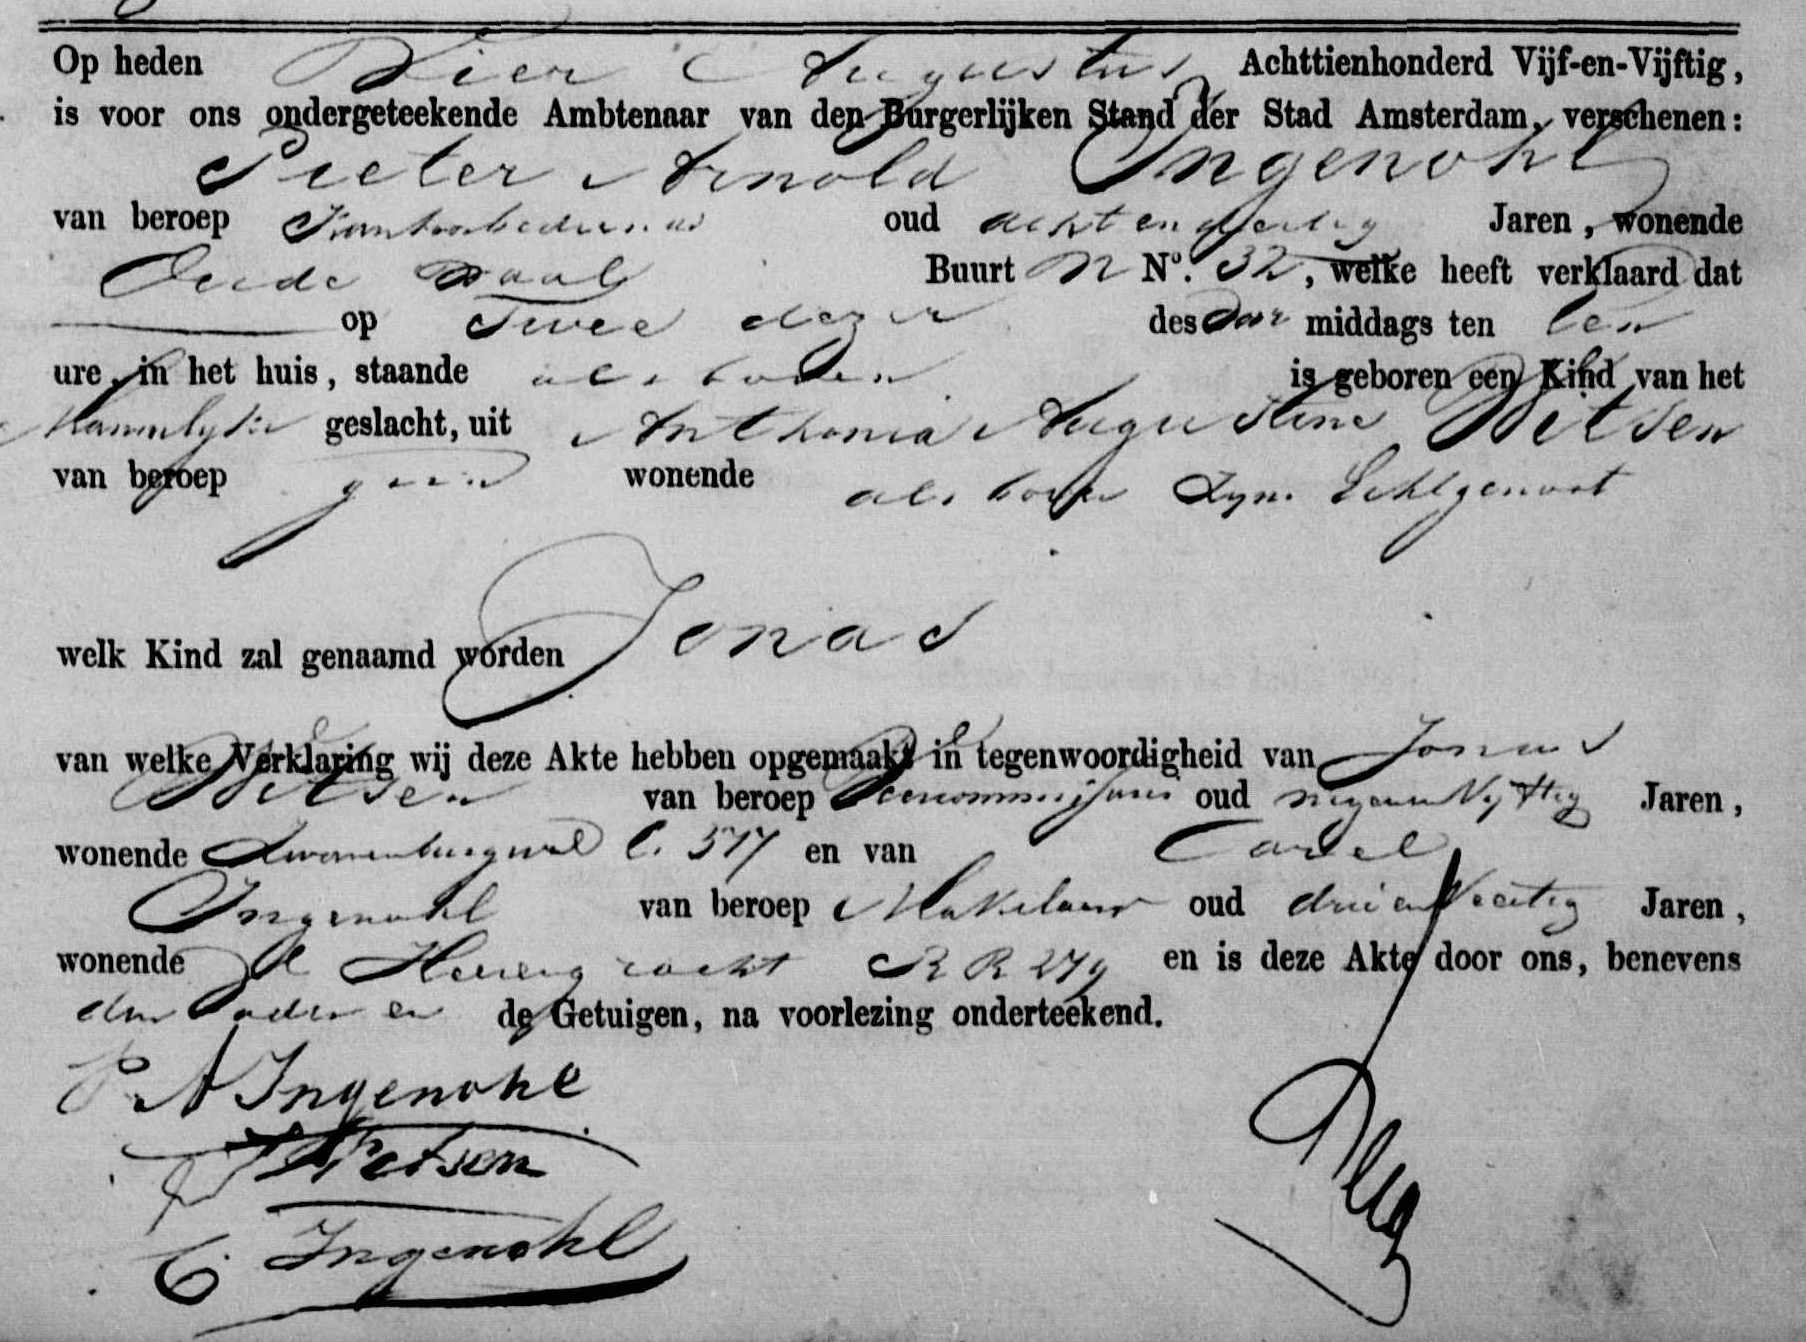 Op heden Vier Augustus Achttienhonderd Vijf-en-Vijftig,
is voor ons ondergeteekende Ambtenaar van den Burgerlijken Stand der Stad Amsterdam, verschenen:
Pieter Arnold Ingenohl
van beroep Kantoorbediende oud acht en dertig Jaren, wonende
Oude Waal Buurt N No. 32, welke heeft verklaard dat
op Twee dezer des Voor middags ten tien
ure, in het huis, staande als boven is geboren een Kind van het
Mannelijke geslacht, uit Anthonia Augustine Witsen
van beroep geen wonende als boven Zyne Echtgenoot
welk Kind zal genaamd worden Jonas
van welke Verklaring wij deze Akte hebben opgemaakt in tegenwoordigheid van Jonas
Witsen van beroep oud negenenvyftig Jaren,
wonende Zwanenburgwal C. 577 en van Carel
Ingenohl van beroep Makelaar oud drie en Veertig Jaren,
wonende de Heerengracht RR 279 en is deze Akte door ons, benevens
den Vader en de Getuigen, na voorlezing onderteekend.
P A Ingenohl
J Witsen
C. Ingenohl